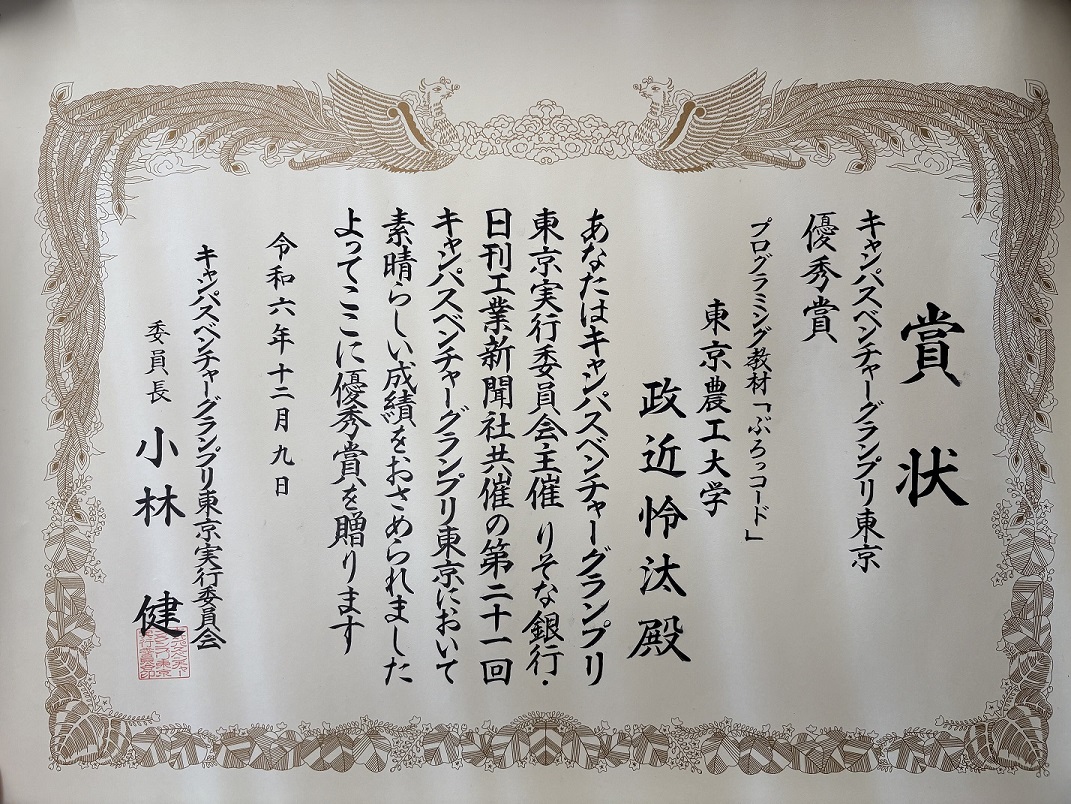 賞状
キャンパスベンチャーグランプリ東京
優秀賞
プログラミング教材「ぶろっコード」
東京農工大学
政近怜汰殿
あなたはキャンパスベンチャーグランプリ
東京実行委員会主催 りそな銀行・
日刊工業新聞社共催の第二十一回
キャンパスベンチャーグランプリ東京において
素晴らしい成績をおさめられました
よってここに優秀賞を贈ります
令和六年十二月九日
キャンパスベンチャーグランプリ東京実行委員会
委員長 小林 健